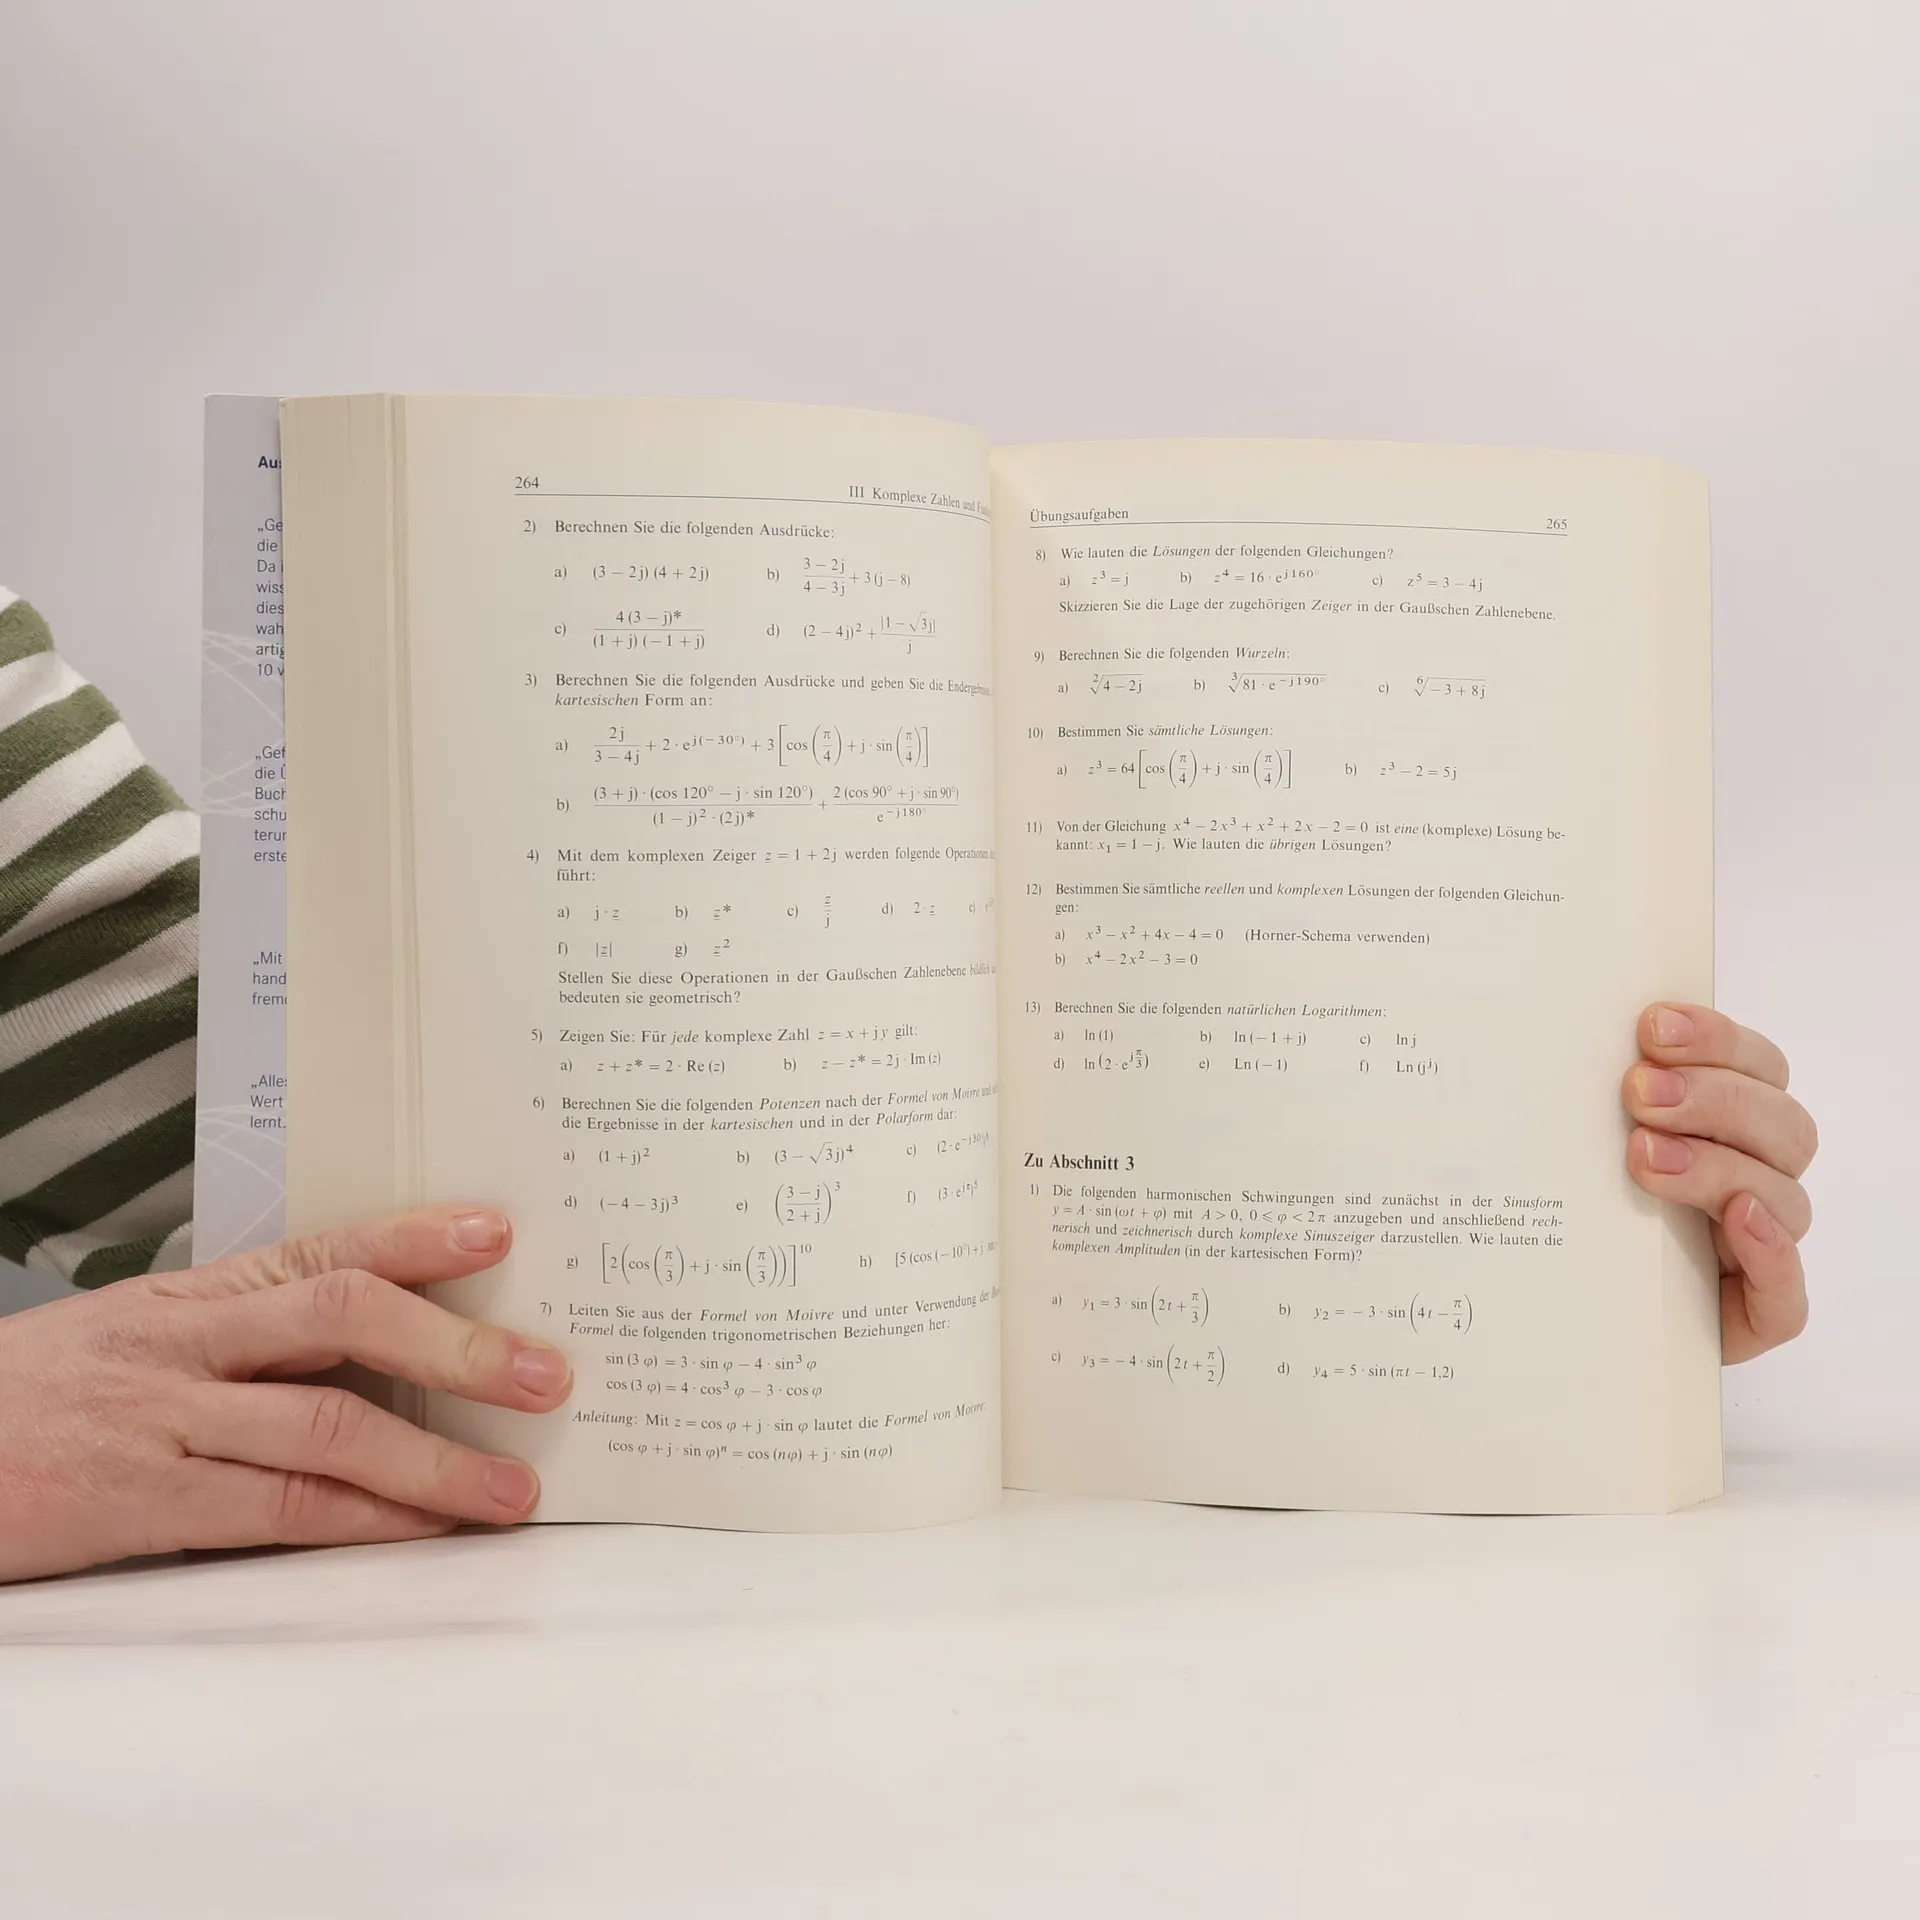 Aus
„Ge
die
Da i
wiss
dies
wah
artig
10 v
„Gef
die Ü
Buch
schu
terun
erste
„Mit
hand
frem
„Alles
Wert
lernt.
264
III Komplexe Zahlen und
2) Berechnen Sie die folgenden Ausdrücke:
a) (3 − 2j) (4 + 2j) b) (3 − 2j)/(4 − 3j) + 3 (j − 8)
c) 4 (3 − j)*/((1 + j) (− 1 + j)) d) (2 − 4j)² + |1 − √3j|/j
3) Berechnen Sie die folgenden Ausdrücke und geben Sie die
kartesischen Form an:
a) 2j/(3 − 4j) + 2 · e^j(− 30°) + 3 [cos (π/4) + j · sin (π/4)]
b) (3 + j) · (cos 120° − j · sin 120°)/((1 − j)² · (2j)*) + 2 (cos 90° + j · sin 90°)/e^(− j180°)
4) Mit dem komplexen Zeiger z = 1 + 2j werden folgende Operationen
führt:
a) j · z b) z* c) z/j d) 2 · z e)
f) |z| g) z²
Stellen Sie diese Operationen in der Gaußschen Zahlenebene bildlich
bedeuten sie geometrisch?
5) Zeigen Sie: Für jede komplexe Zahl z = x + j y gilt:
a) z + z* = 2 · Re (z) b) z − z* = 2j · Im (z)
6) Berechnen Sie die folgenden Potenzen nach der Formel von Moivre und
die Ergebnisse in der kartesischen und in der Polarform dar:
a) (1 + j)² b) (3 − √3j)⁴ c) (2 · e^(− j30°)
d) (− 4 − 3j)³ e) ((3 − j)/(2 + j))³ f) (3 · e^(jπ))⁵
g) [2 (cos (π/3) + j · sin (π/3))]¹⁰ h) [5 (cos (− 10°) + j
7) Leiten Sie aus der Formel von Moivre und unter Verwendung der
Formel die folgenden trigonometrischen Beziehungen her:
sin (3 φ) = 3 · sin φ − 4 · sin³ φ
cos (3 φ) = 4 · cos³ φ − 3 · cos φ
Anleitung: Mit z = cos φ + j · sin φ lautet die Formel von Moivre:
(cos φ + j · sin φ)ⁿ = cos (n φ) + j · sin (n φ)
Übungsaufgaben
265
8) Wie lauten die Lösungen der folgenden Gleichungen?
a) z³ = j b) z⁴ = 16 · e^(j160°) c) z⁵ = 3 − 4j
Skizzieren Sie die Lage der zugehörigen Zeiger in der Gaußschen Zahlenebene.
9) Berechnen Sie die folgenden Wurzeln:
a) ²√(4 − 2j) b) ³√(81 · e^(− j190°)) c) ⁶√(− 3 + 8j)
10) Bestimmen Sie sämtliche Lösungen:
a) z³ = 64 [cos (π/4) + j · sin (π/4)] b) z³ − 2 = 5j
11) Von der Gleichung x⁴ − 2x³ + x² + 2x − 2 = 0 ist eine (komplexe) Lösung be-
kannt: x₁ = 1 − j. Wie lauten die übrigen Lösungen?
12) Bestimmen Sie sämtliche reellen und komplexen Lösungen der folgenden Gleichun-
gen:
a) x³ − x² + 4x − 4 = 0 (Horner-Schema verwenden)
b) x⁴ − 2x² − 3 = 0
13) Berechnen Sie die folgenden natürlichen Logarithmen:
a) ln (1) b) ln (− 1 + j) c) ln j
d) ln (2 · e^(jπ/3)) e) Ln (− 1) f) Ln (jʲ)
Zu Abschnitt 3
1) Die folgenden harmonischen Schwingungen sind zunächst in der Sinusform
y = A · sin (ωt + φ) mit A > 0, 0 ⩽ φ < 2π anzugeben und anschließend rech-
nerisch und zeichnerisch durch komplexe Sinuszeiger darzustellen. Wie lauten die
komplexen Amplituden (in der kartesischen Form)?
a) y₁ = 3 · sin (2t + π/3) b) y₂ = − 3 · sin (4t − π/4)
c) y₃ = − 4 · sin (2t + π/2) d) y₄ = 5 · sin (πt − 1,2)